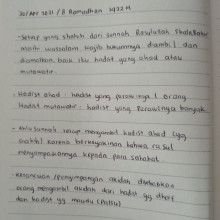 20/Apr 2021 / 8 Ramadhan 1442 H
- Setiap yang shahih dari sunnah Rasulullah Shalallahu
wasallam wajib hukumnya diambil dan
diamalkan baik itu hadist yang ahad atau
mutawatir.
- Hadist ahad : hadist yang perawinya 1 orang
Hadist mutawatir : hadist yang perawinya banyak.
- sunnah tetap mengambil hadist ahad yg
shahih karena berkeyakinan bahwa rasul
menyampaikannya kepada para sahabat.
/penyimpangan akidah disebabkan
orang mengambil akidah dari hadist yg dhaif
dan hadist yg maudhu (Palsu)